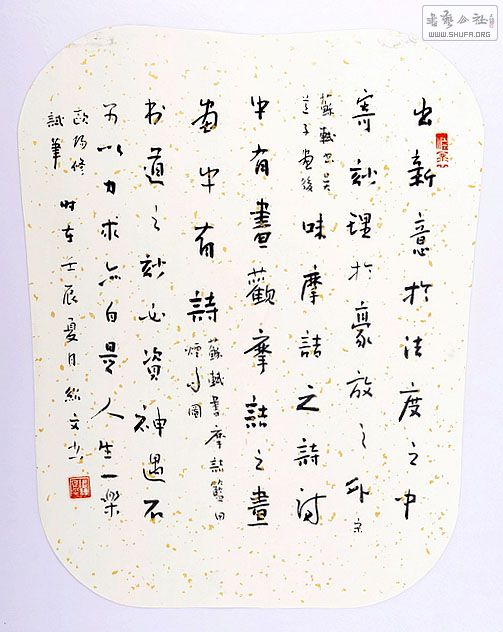 书艺公社
WWW.SHUFA.ORG
出新意於法度之中
寄妙理於豪放之外 宋
蘇軾书吴
道子畫後
味摩詰之詩詩
中有畫觀摩詰之畫
畫中有詩
蘇軾書摩詰藍田
煙雨圖
书道之妙必資神遇不
可以力求亦自是人生一樂
歐陽修
試筆
时在壬辰夏月 文书